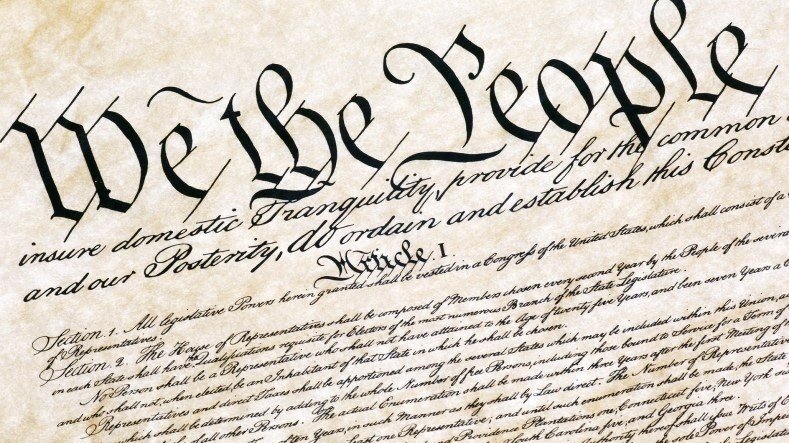 We the People
insure domestic Tranquility, provide for the common
and our Posterity, do ordain and establish this Const
Article. I.
Section. 1. All legislative Powers herein granted shall be vested in a Congress of the United States, which shall consist of a
of Representatives.
Section. 2. The House of Representatives shall be composed of Members chosen every second Year by the People of the several
in each State shall have Qualifications requisite for Electors of the most numerous Branch of the State Legislature.
No Person shall be a Representative who shall not have attained to the Age of twenty five Years, and been seven Years a C
and who shall not, when elected, be an Inhabitant of that State in which he shall be chosen.
Representatives and direct Taxes shall be apportioned among the several States which may be included within this Union, a
which shall be determined by adding to the whole Number of free Persons, including those bound to Service for a Term of
of all other Persons. The actual Enumeration shall be made within three Years after the first Meeting of
of ten Years, in such Manner as they shall by Law direct. The Number of Representative
at Least one Representative; and until such enumeration shall be made, the State
and Providence Plantations one, Connecticut five, New York six
South Carolina five, and Georgia three.
thereof shall issue Writs of
Power of Impea